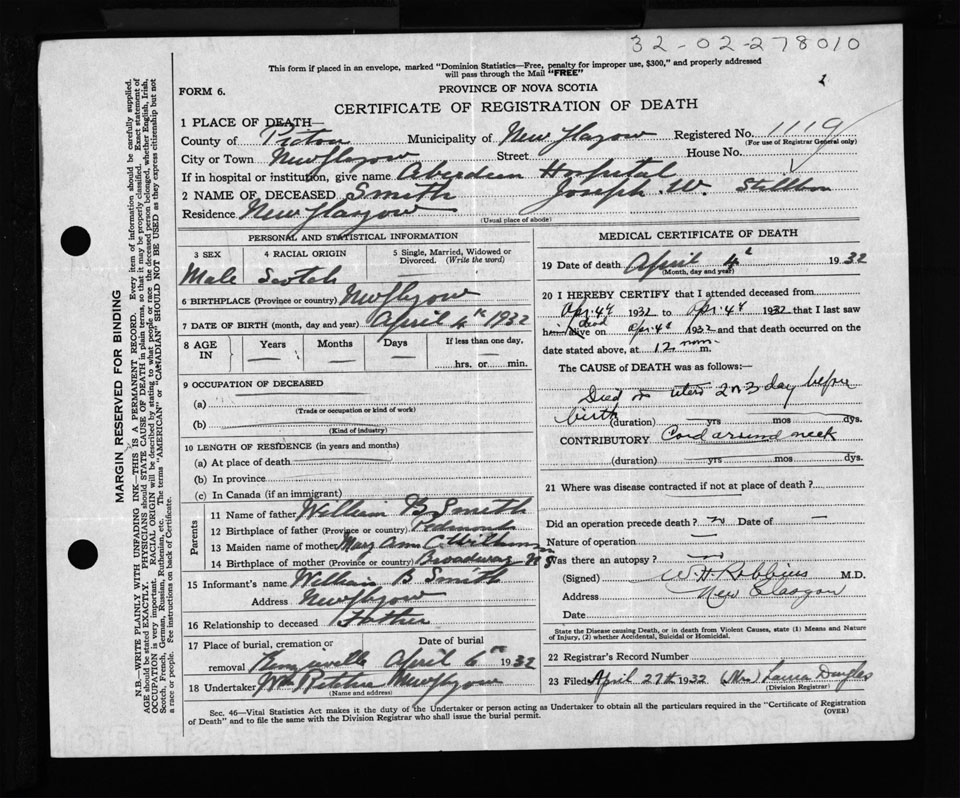 32-02-278010
This form if placed in an envelope, marked "Dominion Statistics—Free, penalty for improper use, $300," and properly addressed
will pass through the Mail "FREE"
FORM 6.
PROVINCE OF NOVA SCOTIA
CERTIFICATE OF REGISTRATION OF DEATH
1 PLACE OF DEATH—
County of Pictou Municipality of New Glasgow Registered No. 1119
(For use of Registrar General only)
City or Town New Glasgow Street House No.
If in hospital or institution, give name Aberdeen Hospital
2 NAME OF DECEASED Smith Joseph W. Stillborn
Residence New Glasgow
(Usual place of abode)
PERSONAL AND STATISTICAL INFORMATION
3 SEX 4 RACIAL ORIGIN 5 Single, Married, Widowed or Divorced. (Write the word)
Male Scotch
6 BIRTHPLACE (Province or country) New Glasgow
7 DATE OF BIRTH (month, day and year) April 4th 1932
8 AGE IN Years Months Days If less than one day,
hrs. or min.
9 OCCUPATION OF DECEASED
(a)
(Trade or occupation or kind of work)
(b)
(Kind of industry)
10 LENGTH OF RESIDENCE (in years and months)
(a) At place of death
(b) In province
(c) In Canada (if an immigrant)
Parents
11 Name of father William B Smith
12 Birthplace of father (Province or country) Redmond
13 Maiden name of mother Mary Ann C.
14 Birthplace of mother (Province or country) Broadway N S
15 Informant's name William B Smith
Address New Glasgow
16 Relationship to deceased Father
17 Place of burial, cremation or Date of burial
removal April 6th 1932
18 Undertaker Wm Ritchie New Glasgow
(Name and address)
MEDICAL CERTIFICATE OF DEATH
19 Date of death April 4 1932
(Month, day and year)
20 I HEREBY CERTIFY that I attended deceased from
Apr. 4 1932 to Apr. 4 1932 that I last saw
him dead alive on Apr. 4 1932 and that death occurred on the
date stated above, at 12 noon m.
The CAUSE of DEATH was as follows:—
Died in utero 2 or 3 day before
birth (duration) yrs mos dys.
CONTRIBUTORY Cord around neck
(duration) yrs mos dys.
21 Where was disease contracted if not at place of death?
Did an operation precede death? Date of
Nature of operation
Was there an autopsy?
(Signed) W. H. Robbins M.D.
Address New Glasgow
Date
State the Disease causing Death, or in death from Violent Causes, state (1) Means and Nature
of Injury, (2) whether Accidental, Suicidal or Homicidal.
22 Registrar's Record Number
23 Filed April 27th 1932 (Mrs) Laura Douglas
(Division Registrar)
Sec. 46—Vital Statistics Act makes it the duty of the Undertaker or person acting as Undertaker to obtain all the particulars required in the "Certificate of Registration
of Death" and to file the same with the Division Registrar who shall issue the burial permit.
(OVER)
MARGIN RESERVED FOR BINDING
N.B.—WRITE PLAINLY WITH UNFADING INK—THIS IS A PERMANENT RECORD. Every item of information should be carefully supplied.
AGE should be stated EXACTLY. PHYSICIANS should STATE CAUSE OF DEATH in plain terms, so that it may be properly classified. Exact statement of
OCCUPATION is very important. RACIAL ORIGIN will be described by stating to what people or race the deceased person belonged, whether English, Irish,
Scotch, French, German, Russian, Ruthenian, etc. The terms "AMERICAN" or "CANADIAN" SHOULD NOT BE USED as they express citizenship but not
a race or people. Fee instructions on back of Certificate.